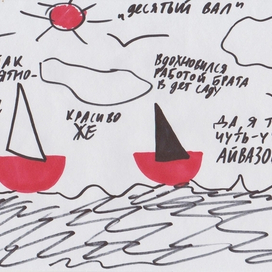 „ДЕСЯТЫЙ ВАЛ"
ТАК
ЯТНО-
ВДОХНОВИЛСЯ
РАБОТОЙ БРАТА
В ДЕТ САДУ
КРАСИВО
ЖЕ
ДА, Я Т
ЧУТЬ-Ч
АЙВАЗО